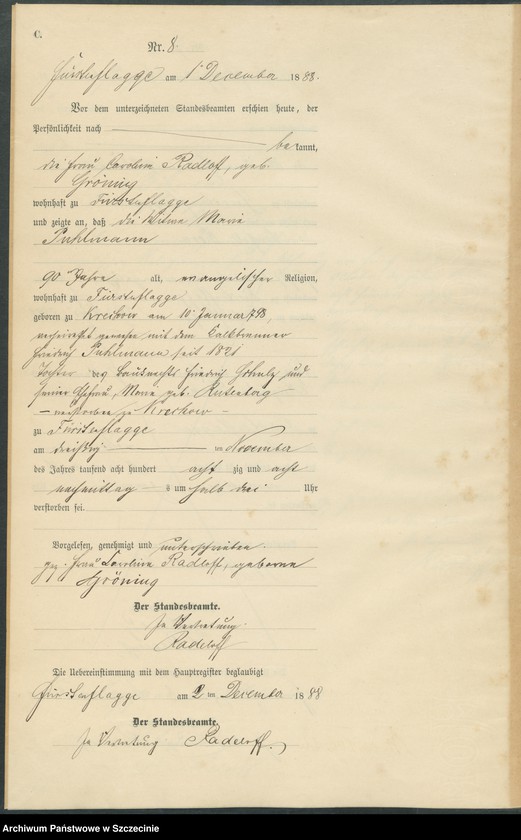 C.
Nr. 8.
Fürstenflagge am 1 December 1888.
Vor dem unterzeichneten Standesbeamten erschien heute, der
Persönlichkeit nach
bekannt,
die Frau Caroline Radloff, geb.
Gröning
wohnhaft zu Fürstenflagge
und zeigte an, daß die Witwe Marie
Puhlmann
90 Jahre alt, evangelischer Religion,
wohnhaft zu Fürstenflagge
geboren zu am 10 Januar 1798,
verheirathet gewesen mit dem
Friedrich Puhlmann seit 1821
Tochter des Bauknechts Friedrich Schulz und
seiner Ehefrau Marie geb.
– verstorben zu –
zu Fürstenflagge
am dreißig im November
des Jahres tausend acht hundert acht zig und acht
nachmittag s um halb drei Uhr
verstorben sei.
Vorgelesen, genehmigt und unterschrieben.
gez. Frau Caroline Radloff, geborene
Gröning
Der Standesbeamte.
In Vertretung.
Radeloff
Die Uebereinstimmung mit dem Hauptregister beglaubigt
Fürstenflagge am 2 ten December 1888
Der Standesbeamte.
In Vertretung Radeloff.
Archiwum Państwowe w Szczecinie